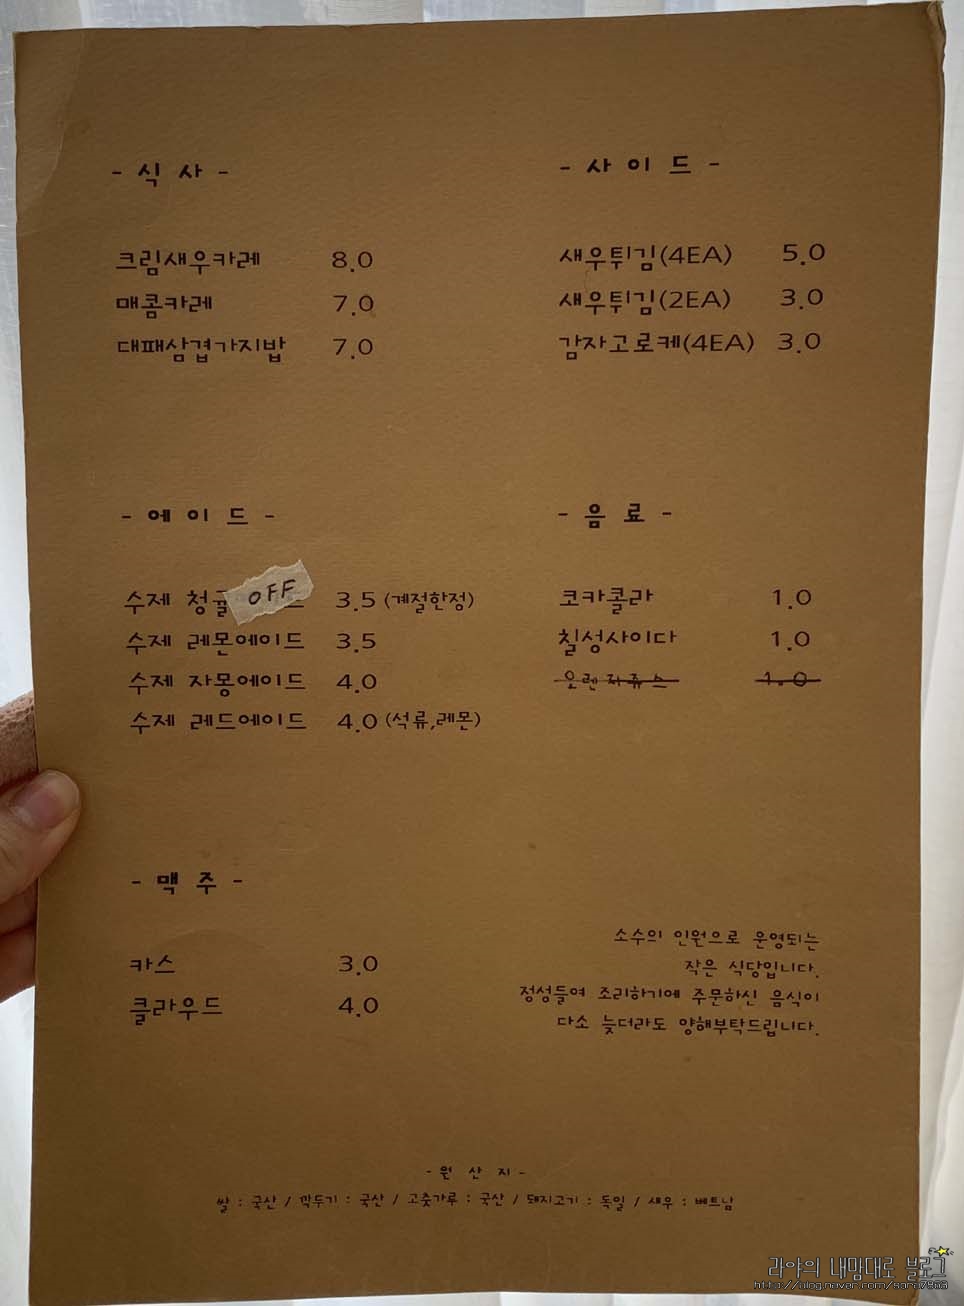 - 식 사 -
크림새우카레 8.0
매콤카레 7.0
대패삼겹가지밥 7.0
- 사 이 드 -
새우튀김(4EA) 5.0
새우튀김(2EA) 3.0
감자고로케(4EA) 3.0
- 에 이 드 -
수제 청귤 OFF 3.5 (계절한정)
수제 레몬에이드 3.5
수제 자몽에이드 4.0
수제 레드에이드 4.0 (석류,레몬)
- 음 료 -
코카콜라 1.0
칠성사이다 1.0
오렌지쥬스 1.0
- 맥 주 -
카스 3.0
클라우드 4.0
소수의 인원으로 운영되는
작은 식당입니다.
정성들여 조리하기에 주문하신 음식이
다소 늦더라도 양해부탁드립니다.
- 원 산 지 -
쌀 : 국산 / 깍두기 : 국산 / 고춧가루 : 국산 / 돼지고기 : 독일 / 새우 : 베트남
라야의 내맘대로 블로그